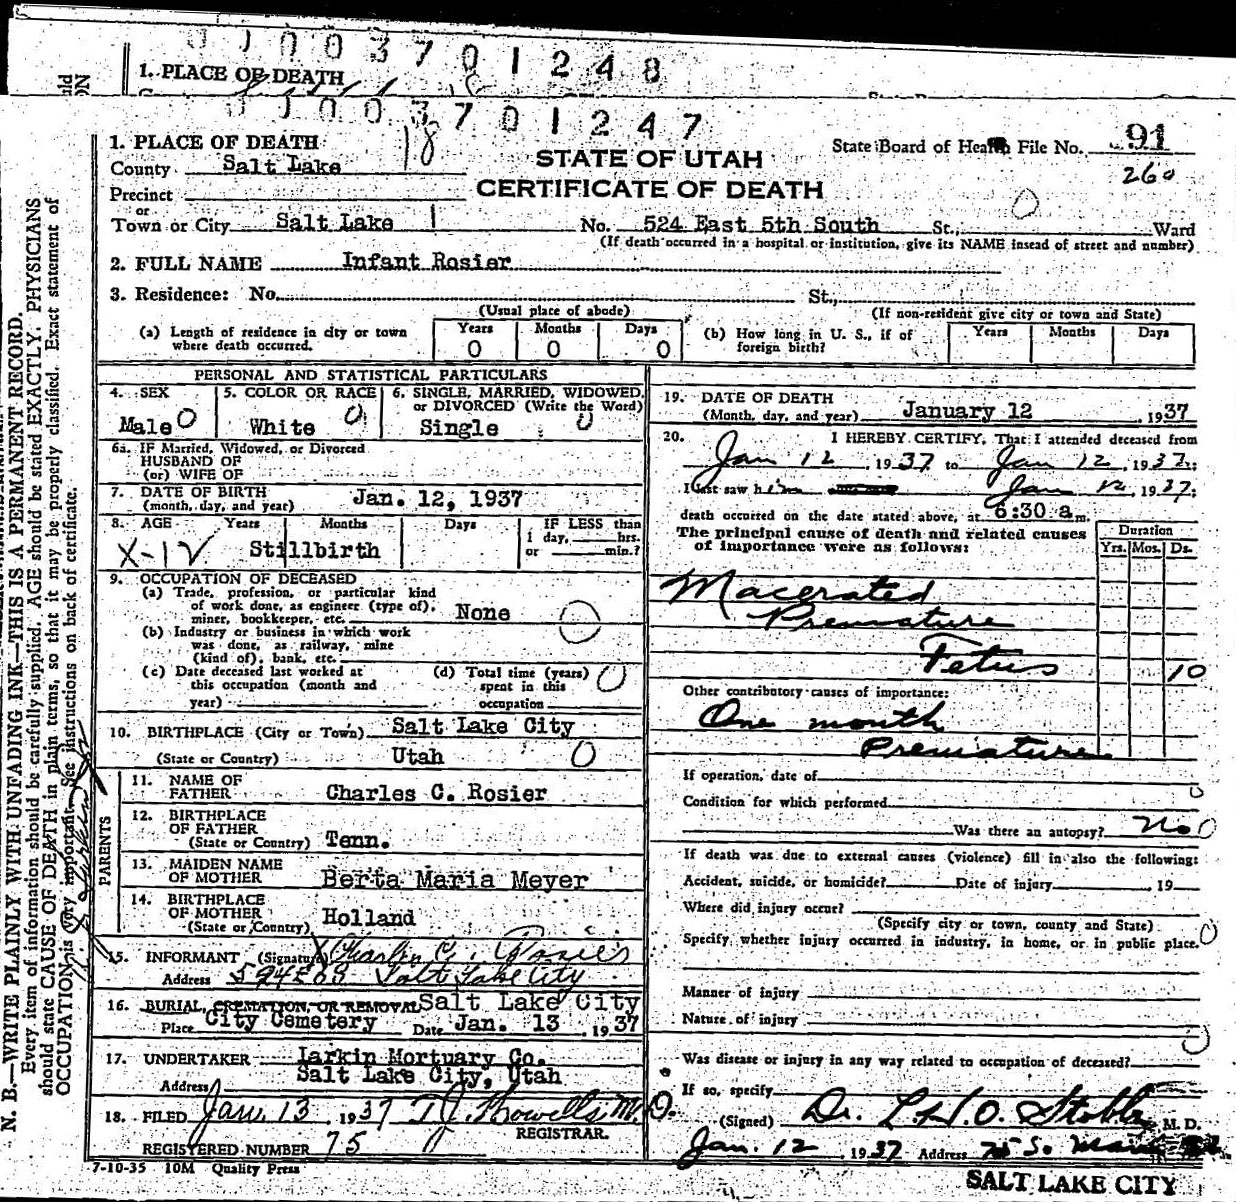 0 0 3 7 0 1 2 4 8
1. PLACE OF DEATH
0 0 3 7 0 1 2 4 7
1. PLACE OF DEATH 18
County Salt Lake
Precinct
or
Town or City Salt Lake 1
STATE OF UTAH
CERTIFICATE OF DEATH
State Board of Health File No. 91
260
No. 524 East 5th South St., Ward
(If death occurred in a hospital or institution, give its NAME insead of street and number)
2. FULL NAME Infant Rosier
3. Residence: No. St.,
(Usual place of abode) (If non-resident give city or town and State)
(a) Length of residence in city or town where death occurred. Years 0 Months 0 Days 0
(b) How long in U. S., if of foreign birth? Years Months Days
PERSONAL AND STATISTICAL PARTICULARS
4. SEX Male 0
5. COLOR OR RACE White 0
6. SINGLE, MARRIED, WIDOWED, or DIVORCED (Write the Word) Single 0
6a. IF Married, Widowed, or Divorced
HUSBAND OF
(or) WIFE OF
7. DATE OF BIRTH
(month, day, and year) Jan. 12, 1937
8. AGE Years Months Days IF LESS than
1 day, hrs.
or min.?
X-12 Stillbirth
9. OCCUPATION OF DECEASED
(a) Trade, profession, or particular kind
of work done, as engineer (type of),
miner, bookkeeper, etc. None
(b) Industry or business in which work
was done, as railway, mine
(kind of), bank, etc.
(c) Date deceased last worked at
this occupation (month and
year)
(d) Total time (years)
spent in this
occupation 0
10. BIRTHPLACE (City or Town) Salt Lake City
(State or Country) Utah 0
PARENTS
11. NAME OF
FATHER Charles C. Rosier
12. BIRTHPLACE
OF FATHER
(State or Country) Tenn.
13. MAIDEN NAME
OF MOTHER Berta Maria Meyer
14. BIRTHPLACE
OF MOTHER
(State or Country) Holland
15. INFORMANT (Signature) X Charles C. Rosier
Address 524 E 5 S Salt Lake City
16. BURIAL, CREMATION, OR REMOVAL Salt Lake City
Place City Cemetery Date Jan. 13 1937
17. UNDERTAKER Larkin Mortuary Co.
Address Salt Lake City, Utah
18. FILED Jan. 13, 1937 T J Howells M.D.
REGISTRAR.
REGISTERED NUMBER 75
7-10-35 10M Quality Press
19. DATE OF DEATH
(Month, day, and year) January 12 1937
20. I HEREBY CERTIFY, That I attended deceased from
Jan 12, 1937 to Jan 12, 1937;
I last saw him Jan 12, 1937;
death occurred on the date stated above, at 6:30 a.m.
The principal cause of death and related causes
of importance were as follows:
Duration
Yrs. Mos. Ds.
Macerated
Premature
Fetus 10
Other contributory causes of importance:
One month
Premature
If operation, date of
Condition for which performed
Was there an autopsy? No 0
If death was due to external causes (violence) fill in also the following:
Accident, suicide, or homicide? Date of injury 19
Where did injury occur?
(Specify city or town, county and State)
Specify whether injury occurred in industry, in home, or in public place.
Manner of injury
Nature of injury
Was disease or injury in any way related to occupation of deceased?
If so, specify
(Signed) Dr. M. D.
Jan. 12, 1937 Address 75 So. Main
SALT LAKE CITY
N. B.—WRITE PLAINLY WITH UNFADING INK—THIS IS A PERMANENT RECORD.
Every item of information should be carefully supplied. AGE should be stated EXACTLY. PHYSICIANS
should state CAUSE OF DEATH in plain terms, so that it may be properly classified. Exact statement of
OCCUPATION is very important. See instructions on back of certificate.